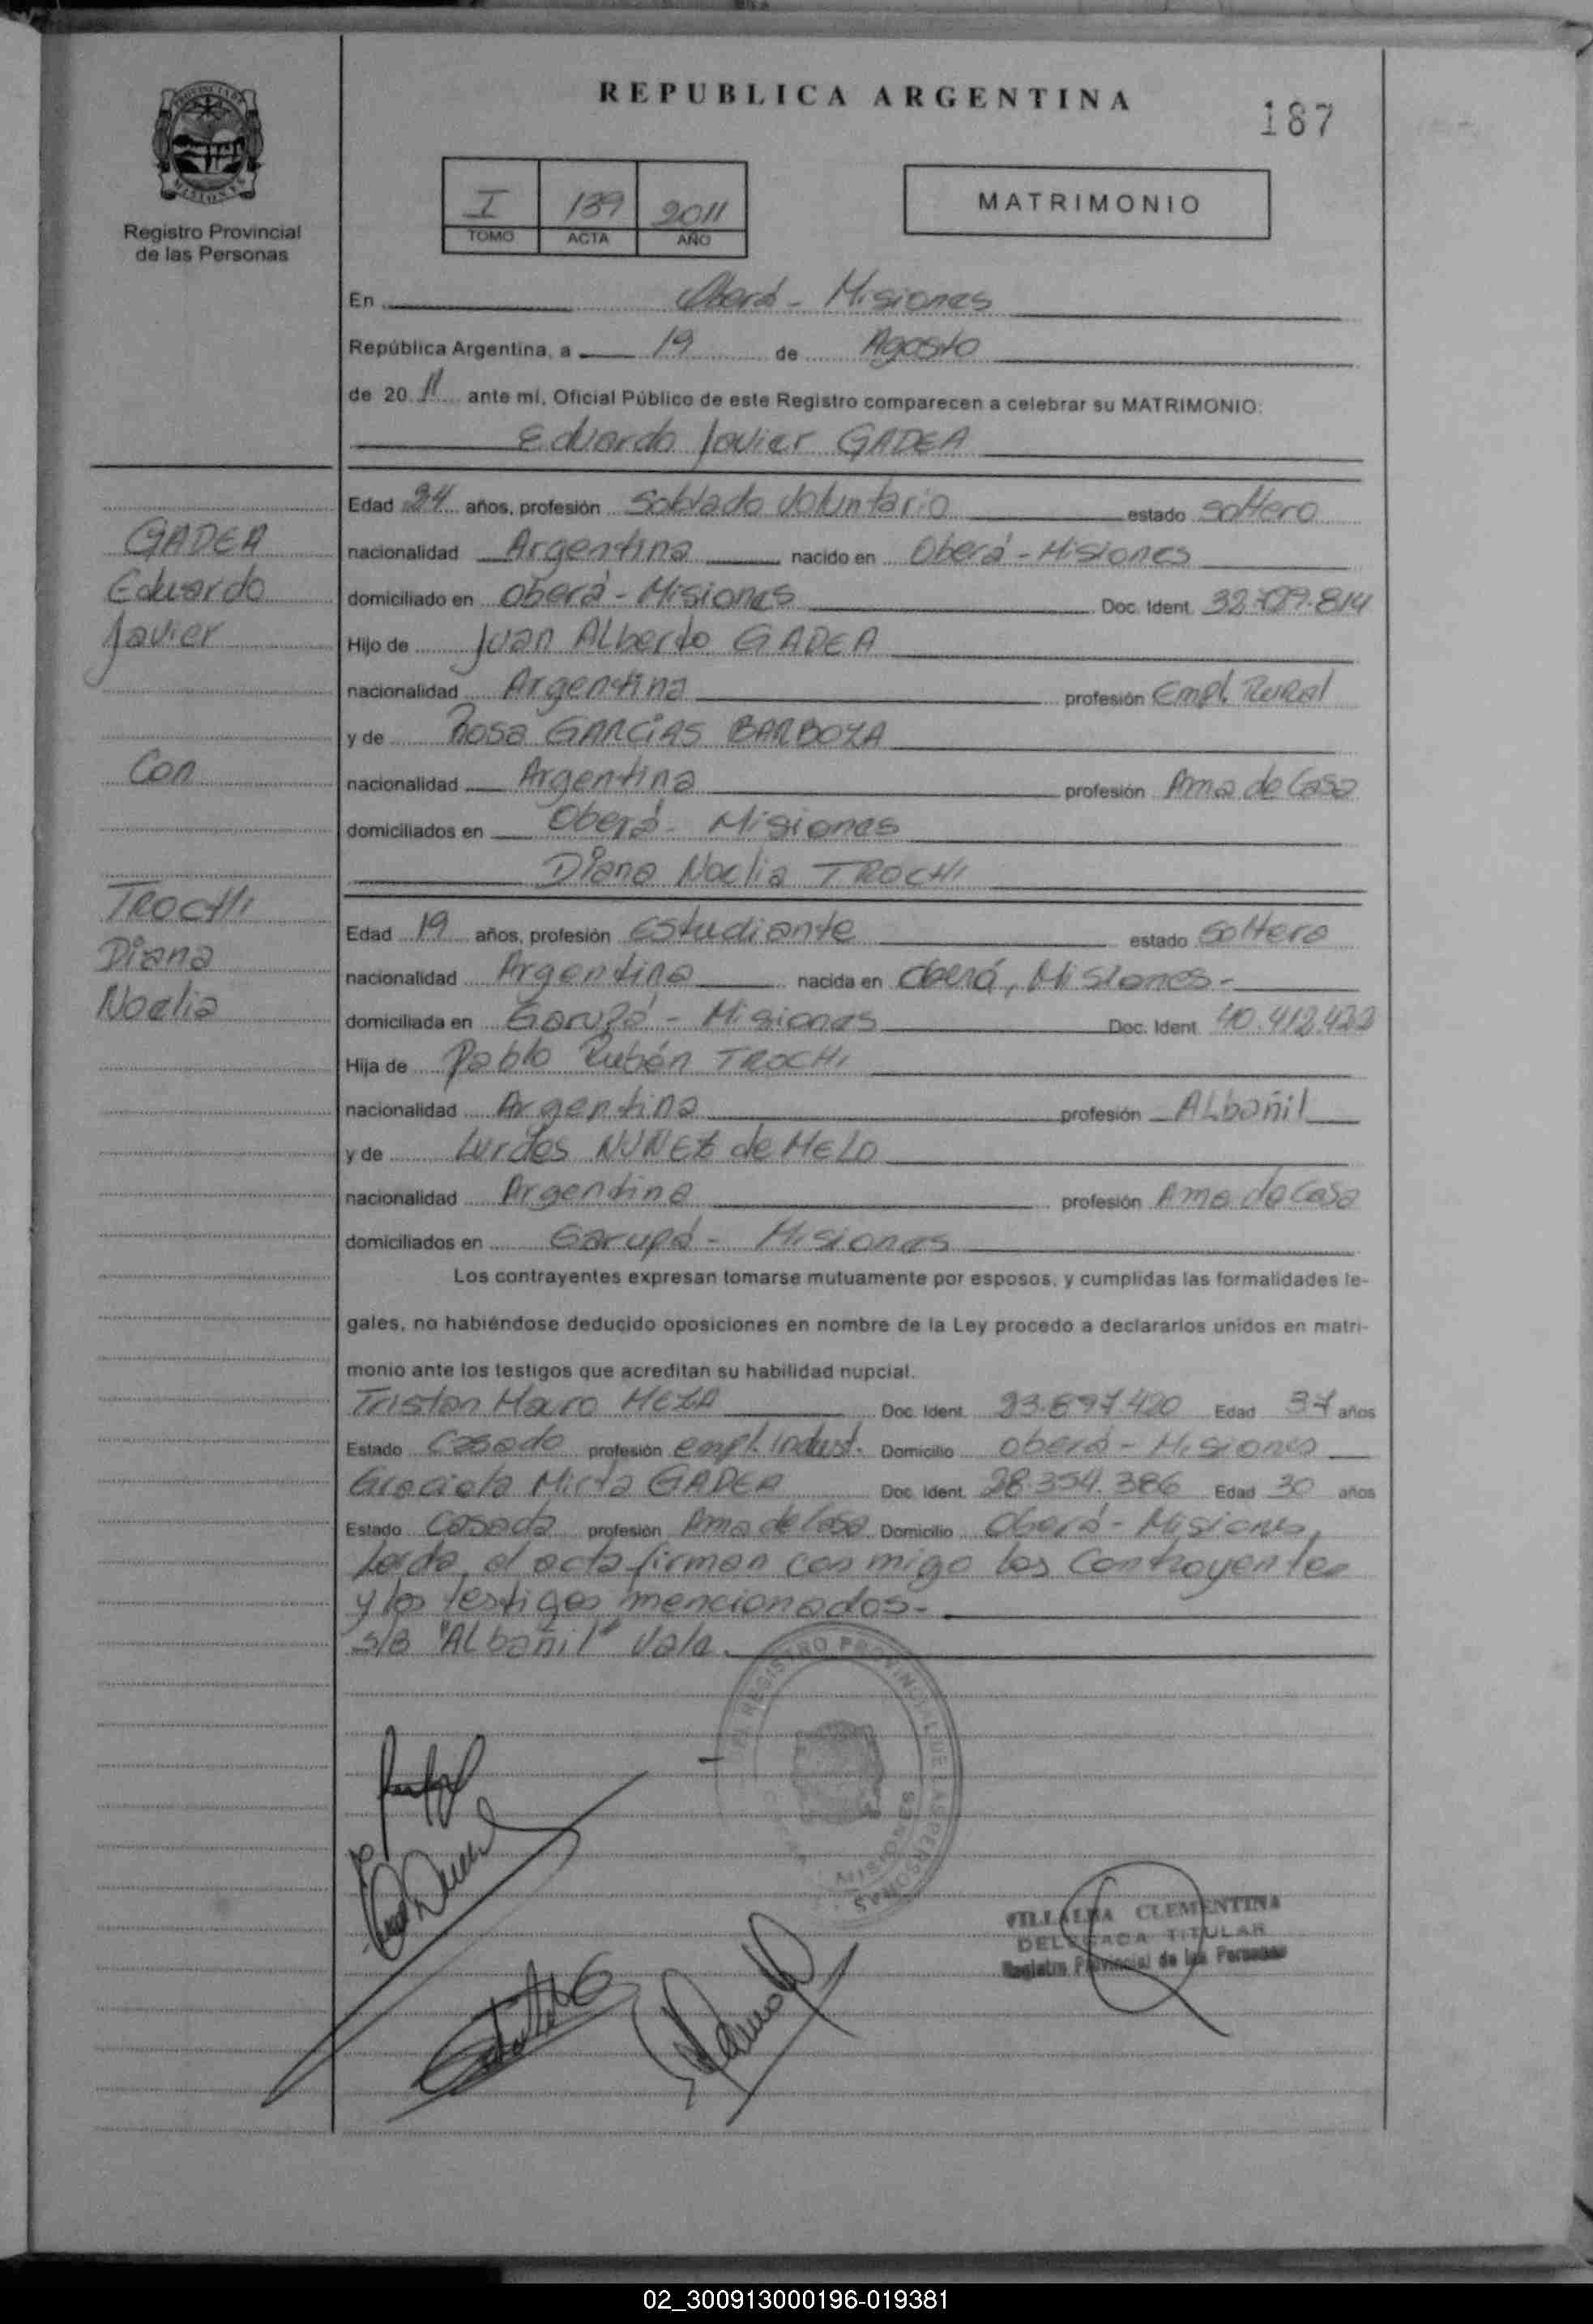 REPUBLICA ARGENTINA
187
PROVINCIA DE MISIONES
Registro Provincial
de las Personas
I 139 2011
TOMO ACTA AÑO
MATRIMONIO
En Oberá - Misiones
República Argentina, a 19 de Agosto
de 20 11 ante mí, Oficial Público de este Registro comparecen a celebrar su MATRIMONIO:
Eduardo Javier GADEA
GADEA
Eduardo
Javier
Con
TROCHI
Diana
Noelia
Edad 24 años, profesión Soldado Voluntario estado soltero
nacionalidad Argentina nacido en Oberá - Misiones
domiciliado en Oberá - Misiones Doc. Ident.
Hijo de Juan ALberto GADEA
nacionalidad Argentina profesión Empl. Rural
y de Rosa GARCIAS BARBOZA
nacionalidad Argentina profesión Ama de Casa
domiciliados en Oberá - Misiones
Diana Noelia TROCHI
Edad 19 años, profesión Estudiante estado Soltera
nacionalidad Argentina nacida en Oberá, Misiones-
domiciliada en Garupá - Misiones Doc. Ident. 40.412.422
Hija de Pablo Rubén TROCHI
nacionalidad Argentina profesión ALbañil
y de Lurdes NUÑEZ de MELO
nacionalidad Argentina profesión Ama de Casa
domiciliados en Garupá - Misiones
Los contrayentes expresan tomarse mutuamente por esposos, y cumplidas las formalidades le-
gales, no habiéndose deducido oposiciones en nombre de la Ley procedo a declararlos unidos en matri-
monio ante los testigos que acreditan su habilidad nupcial.
Tristan Mauro MEZA Doc. Ident. 23.697.420 Edad 37 años
Estado Casado profesión empl. Indust. Domicilio Oberá - Misiones
Graciela Mirta GADEA Doc. Ident. 28.354.386 Edad 30 años
Estado Casada profesión Ama de Casa Domicilio Oberá - Misiones,
Leída el acta firman con migo los Contrayentes
y los testigos mencionados-
s/B "ALbañil" Vale.
REGISTRO PROVINCIAL DE LAS PERSONAS
MISIONES
VILLALBA CLEMENTINA
DELEGADA TITULAR
Registro Provincial de las Personas
02_300913000196-019381